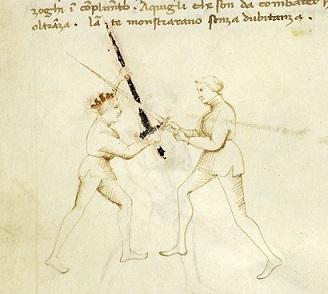 zoghi i complimento. Aquigli che son da combater
oltraza. la te monstrarano senza dubitanza.